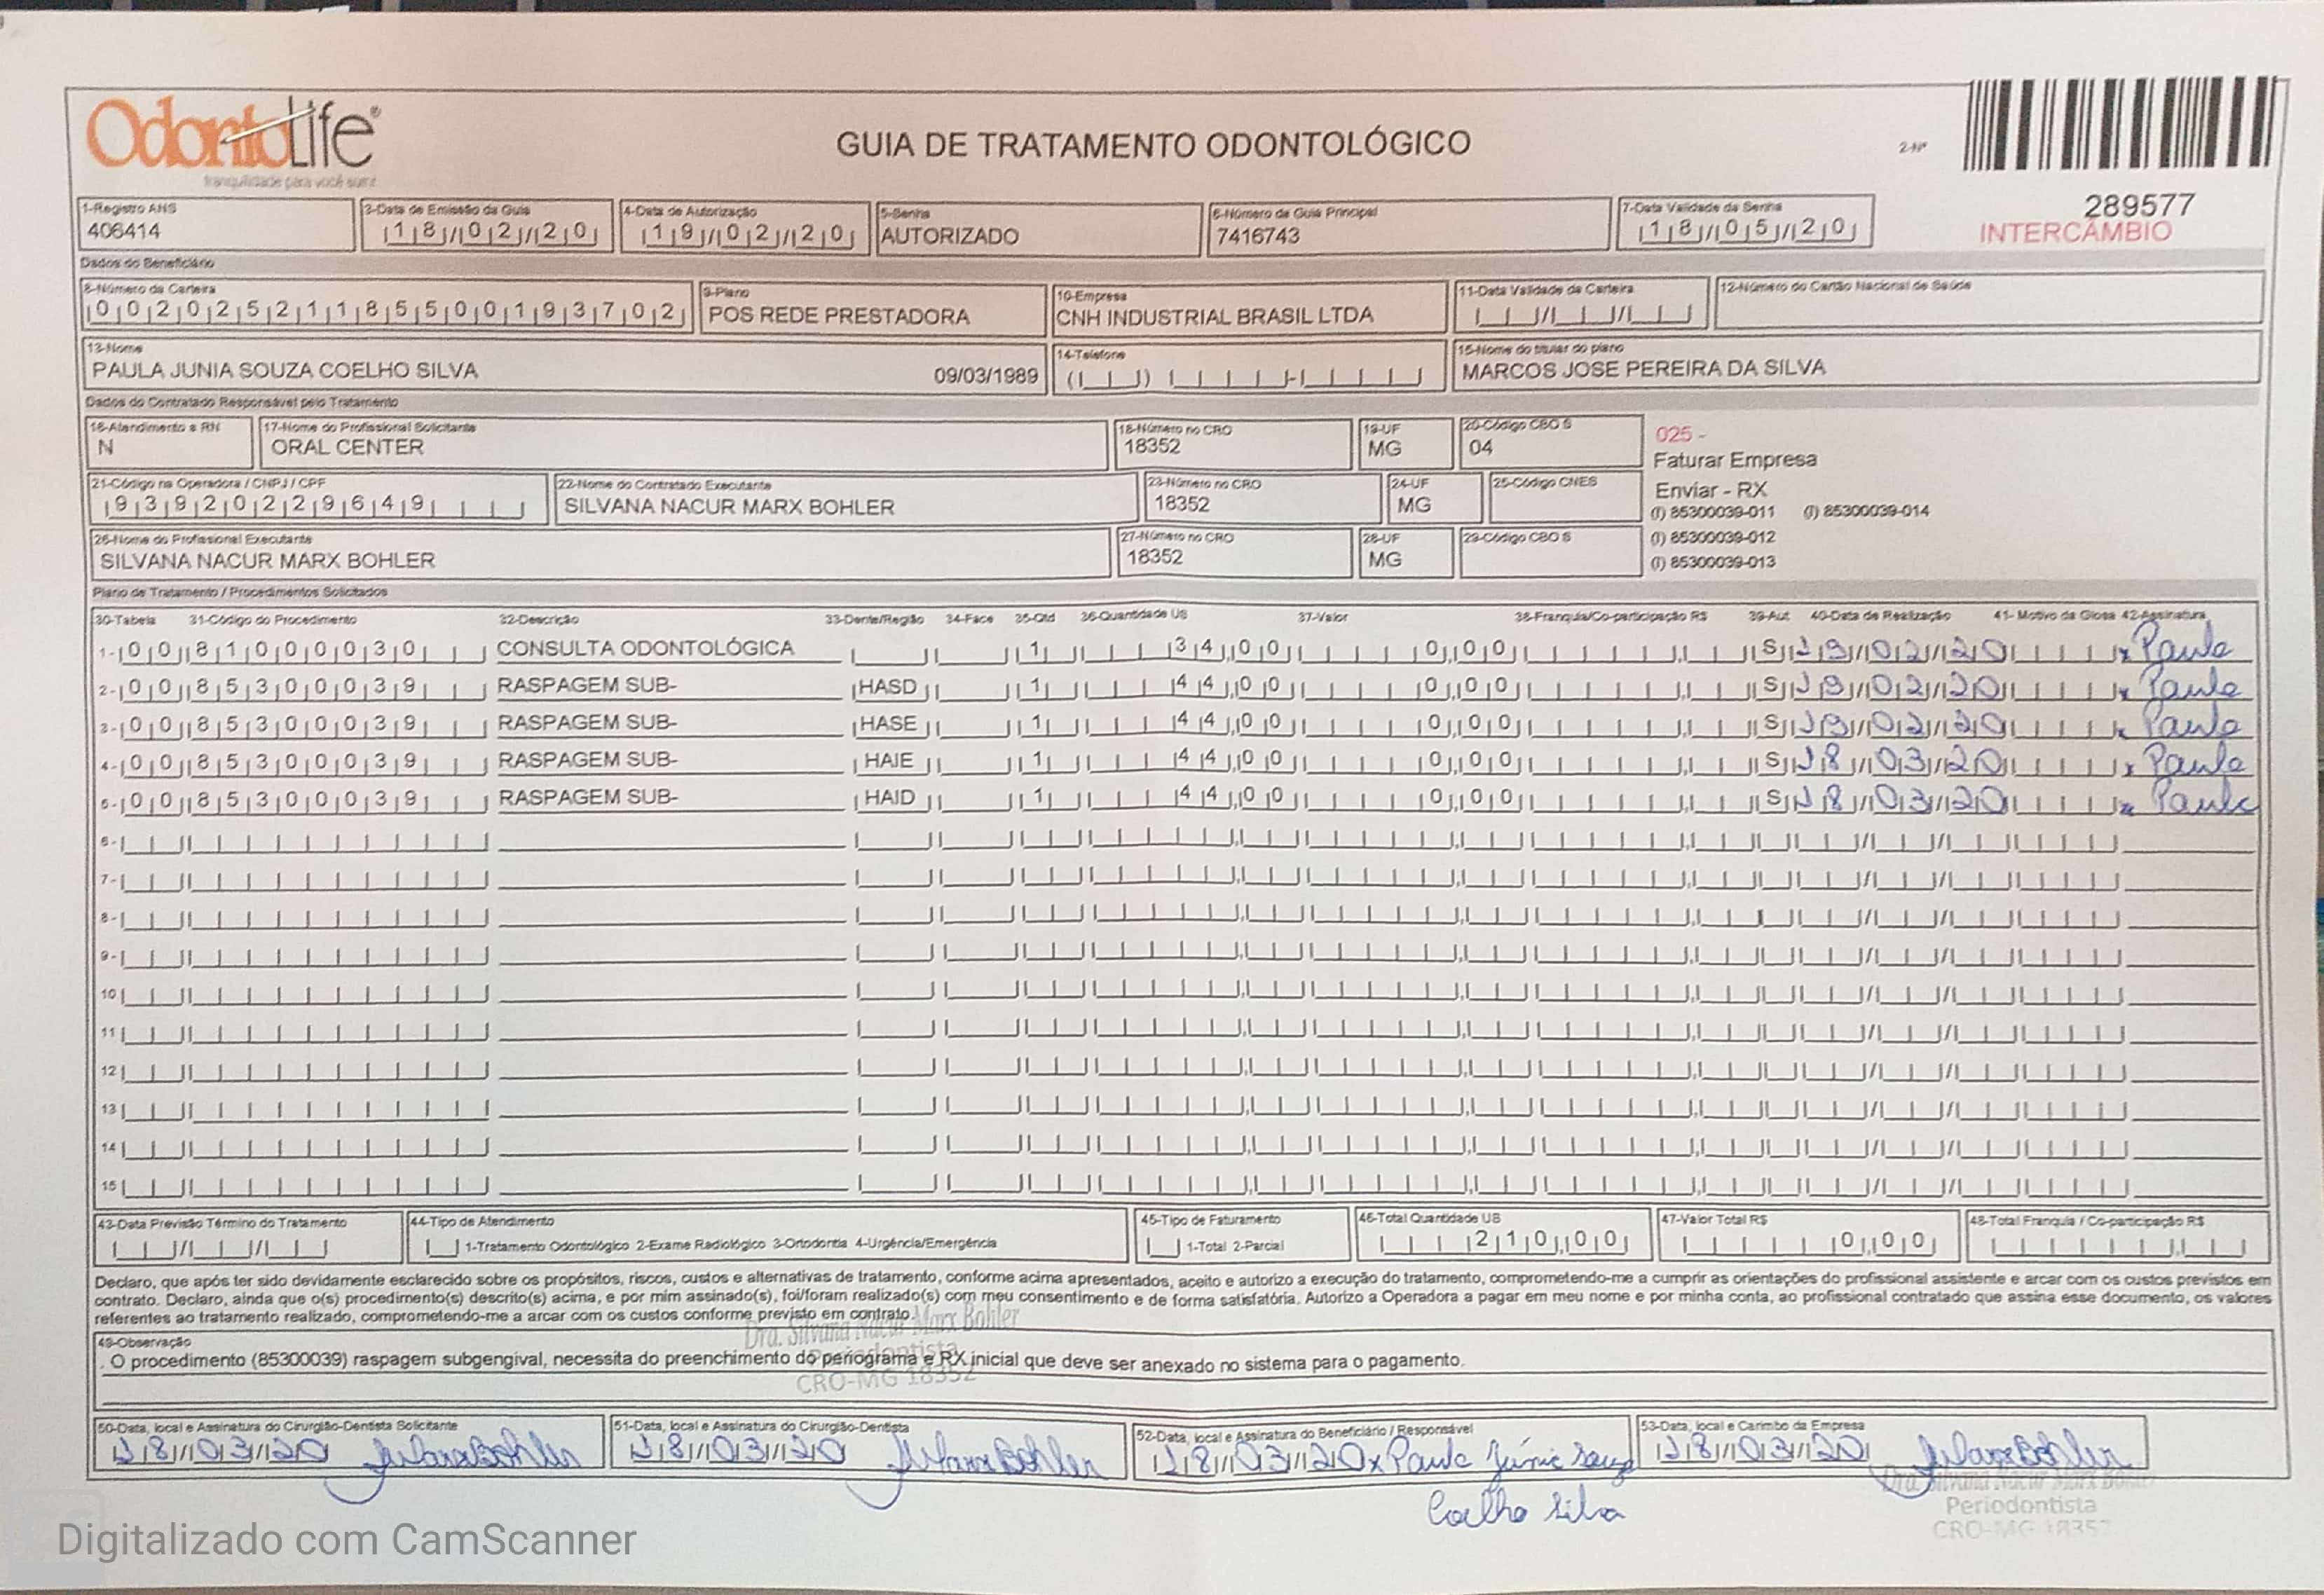 OdontoLife®
tranquilidade para você sorrir
GUIA DE TRATAMENTO ODONTOLÓGICO
2-Nº
289577
INTERCÂMBIO
1-Registro ANS
406414
3-Data de Emissão da Guia
18/02/20
4-Data de Autorização
19/02/20
5-Senha
AUTORIZADO
6-Número da Guia Principal
7416743
7-Data Validade da Senha
18/05/20
Dados do Beneficiário
8-Número da Carteira
00202521185500193702
9-Plano
POS REDE PRESTADORA
10-Empresa
CNH INDUSTRIAL BRASIL LTDA
11-Data Validade da Carteira
12-Número do Cartão Nacional de Saúde
13-Nome
PAULA JUNIA SOUZA COELHO SILVA 09/03/1989
14-Telefone
15-Nome do titular do plano
MARCOS JOSE PEREIRA DA SILVA
Dados do Contratado Responsável pelo Tratamento
16-Atendimento a RN
N
17-Nome do Profissional Solicitante
ORAL CENTER
18-Número no CRO
18352
19-UF
MG
20-Código CBO S
04
025 -
Faturar Empresa
Enviar - RX
(I) 85300039-011 (I) 85300039-014
(I) 85300039-012
(I) 85300039-013
21-Código na Operadora / CNPJ / CPF
93920229649
22-Nome do Contratado Executante
SILVANA NACUR MARX BOHLER
23-Número no CRO
18352
24-UF
MG
25-Código CNES
26-Nome do Profissional Executante
SILVANA NACUR MARX BOHLER
27-Número no CRO
18352
28-UF
MG
29-Código CBO S
Plano de Tratamento / Procedimentos Solicitados
30-Tabela 31-Código do Procedimento 32-Descrição 33-Dente/Região 34-Face 35-Qtd 36-Quantidade US 37-Valor 38-Franquia/Co-participação R$ 39-Aut 40-Data de Realização 41- Motivo da Glosa 42-Assinatura
1- 00 81000030 CONSULTA ODONTOLÓGICA 1 34,00 0,00 S 19/02/20 x Paula
2- 00 85300039 RASPAGEM SUB- HASD 1 44,00 0,00 S 19/02/20 x Paula
3- 00 85300039 RASPAGEM SUB- HASE 1 44,00 0,00 S 19/02/20 x Paula
4- 00 85300039 RASPAGEM SUB- HAIE 1 44,00 0,00 S 18/03/20 x Paula
5- 00 85300039 RASPAGEM SUB- HAID 1 44,00 0,00 S 18/03/20 x Paula
6-
7-
8-
9-
10
11
12
13
14
15
43-Data Previsão Término do Tratamento
44-Tipo de Atendimento
1-Tratamento Odontológico 2-Exame Radiológico 3-Ortodontia 4-Urgência/Emergência
45-Tipo de Faturamento
1-Total 2-Parcial
46-Total Quantidade US
210,00
47-Valor Total R$
0,00
48-Total Franquia / Co-participação R$
Declaro, que após ter sido devidamente esclarecido sobre os propósitos, riscos, custos e alternativas de tratamento, conforme acima apresentados, aceito e autorizo a execução do tratamento, comprometendo-me a cumprir as orientações do profissional assistente e arcar com os custos previstos em
contrato. Declaro, ainda que o(s) procedimento(s) descrito(s) acima, e por mim assinado(s), foi/foram realizado(s) com meu consentimento e de forma satisfatória. Autorizo a Operadora a pagar em meu nome e por minha conta, ao profissional contratado que assina esse documento, os valores
referentes ao tratamento realizado, comprometendo-me a arcar com os custos conforme previsto em contrato.
Dra. Silvana Nacur Marx Bohler
Periodontista
CRO-MG 18352
49-Observação
. O procedimento (85300039) raspagem subgengival, necessita do preenchimento do periograma e RX inicial que deve ser anexado no sistema para o pagamento.
50-Data, local e Assinatura do Cirurgião-Dentista Solicitante
18/03/20 SMarxBohler
51-Data, local e Assinatura do Cirurgião-Dentista
18/03/20 SMarxBohler
52-Data, local e Assinatura do Beneficiário / Responsável
18/03/20 x Paula Júnia Souza
Coelho Silva
53-Data, local e Carimbo da Empresa
18/03/20 SMarxBohler
Dra. Silvana Nacur Marx Bohler
Periodontista
CRO-MG 18352
Digitalizado com CamScanner